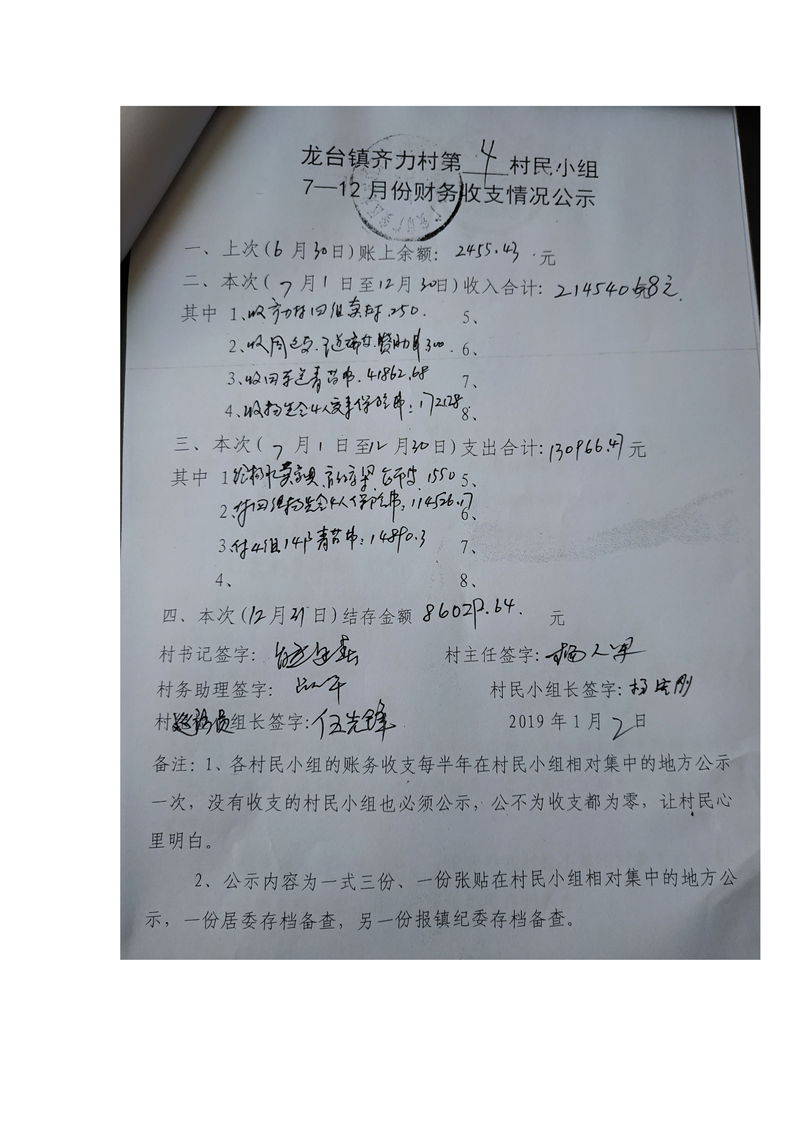 龙台镇齐力村第 4 村民小组
7—12月份财务收支情况公示
一、上次(6月30日)账上余额: 2455.43 元
二、本次(7月1日至12月30日)收入合计: 214540.68元
其中 1、收齐力村四组 250. 5、
2、收周 300. 6、
3、收回 青苗费. 41862.68 7、
4、收杨先会4人 保险费: 172128. 8、
三、本次(7月1日至12月30日)支出合计: 130966.47元
其中 1 1550 5、
2、付四组杨先会4人保险费: 114526.17
6、
3、付4组14户青苗费: 14890.3 7、
4、 8、
四、本次(12月31日)结存金额 86029.64. 元
村书记签字: 村主任签字: 杨
村务助理签字: 村民小组长签字: 杨 刚
村 员组长签字: 伍先锋 2019年1月2日
备注: 1、各村民小组的账务收支每半年在村民小组相对集中的地方公示
一次, 没有收支的村民小组也必须公示, 公不为收支都为零, 让村民心
里明白。
2、公示内容为一式三份、一份张贴在村民小组相对集中的地方公
示, 一份居委存档备查, 另一份报镇纪委存档备查。